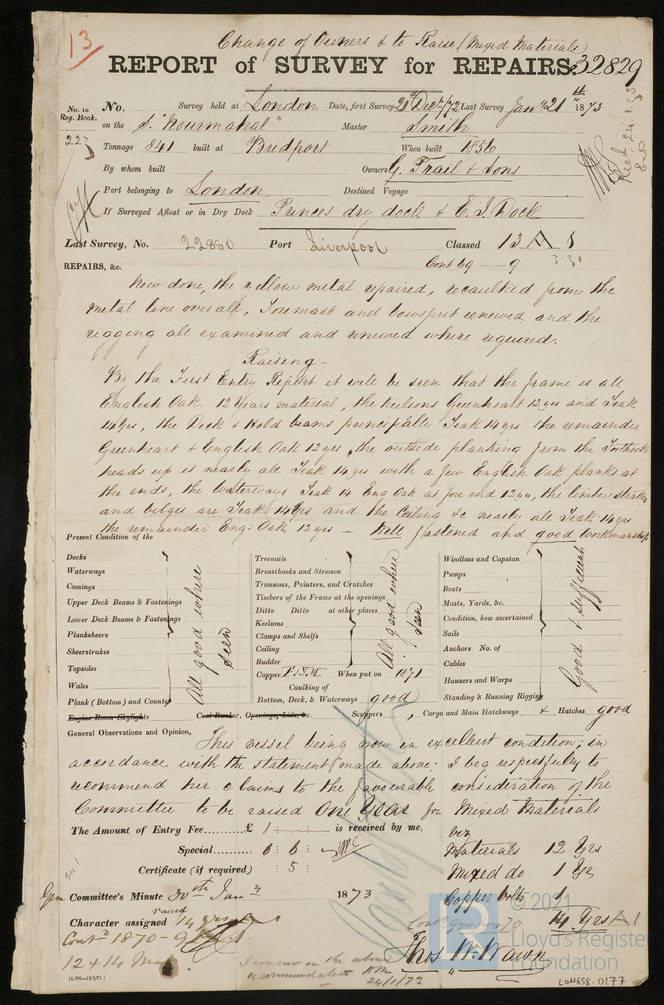 13
Change of Owners & to Raise (Mixed Materials)
REPORT of SURVEY for REPAIRS. 32829
No. in Reg. Book. No. Survey held at London Date, first Survey 21st Dec/72 Last Survey Jany 21st 1873
223 on the S. "Nourmahal" Master Smith
Tonnage 841 built at Bridport When built 1856
By whom built Owners G. Traill & Sons
Port belonging to London Destined Voyage
If Surveyed Afloat or in Dry Dock Princes dry dock & E. I. Dock
Last Survey, No. 22880 Port Liverpool Classed 13 A 1
Cont 69 — 9
REPAIRS, &c.
Now done, the yellow metal repaired, recaulked from the
metal line over all, Foremast and bowsprit renewed, and the
rigging all examined and renewed where required.
Raising —
By the First Entry Report it will be seen that the frame is all
English Oak 12 Years material, the keelsons Greenheart 12 yrs and Teak
14 yrs, the Deck & Hold beams principally Teak 14 yrs the remainder
Greenheart & English Oak 12 yrs, the outside planking from the Futtock
heads up is nearly all Teak 14 yrs with a few English Oak planks at
the ends, the Waterways Teak 14 Eng Oak at fore end 12 yrs, the limber strakes
and bilges are Teak 14 yrs and the Ceiling &c nearly all Teak 14 yrs
the remainder Eng: Oak 12 yrs — Well fastened and good workmanship
Present Condition of the
Decks
Waterways
Comings
Upper Deck Beams & Fastenings
Lower Deck Beams & Fastenings
Planksheers
Sheerstrakes
Topsides
Wales
Plank (Bottom) and Counter
All good where seen
Engine Room Skylights Coal Bunker, Openings, Lids, &c.
Treenails
Breasthooks and Stemson
Transoms, Pointers, and Crutches
Timbers of the Frame at the openings
Ditto Ditto at other places
Keelsons
Clamps and Shelfs
Ceiling
Rudder
All good where seen
Copper F.Y.M. When put on 1871
Caulking of
Bottom, Deck, & Waterways good
Scuppers , Cargo and Main Hatchways & Hatches good
Windlass and Capstan
Pumps
Boats
Masts, Yards, &c.
Condition, how ascertained
Sails
Anchors No. of
Cables
Hawsers and Warps
Standing & Running Rigging
Good & sufficient
General Observations and Opinion,
This vessel being now in excellent condition; in
accordance with the statement made above; I beg respectfully to
recommend her claims to the favourable consideration of the
Committee to be raised One Year for Mixed Materials
viz
The Amount of Entry Fee £ 1 : : is received by me,
Special 6 : 6 :
Certificate (if required) : 5 :
Materials 12 Yrs
Mixed do 1 Yr
Copper bolts 1
14 Yrs A 1
Committee's Minute 30th Jany 1873
Character assigned raised 14 years
Contd 1870 - 9
12 & 14 Mat
I concur in the above
recommendation
24/1/73
Thos Wm Wawn
© 2021
Lloyd's Register
Foundation
LON558-0177